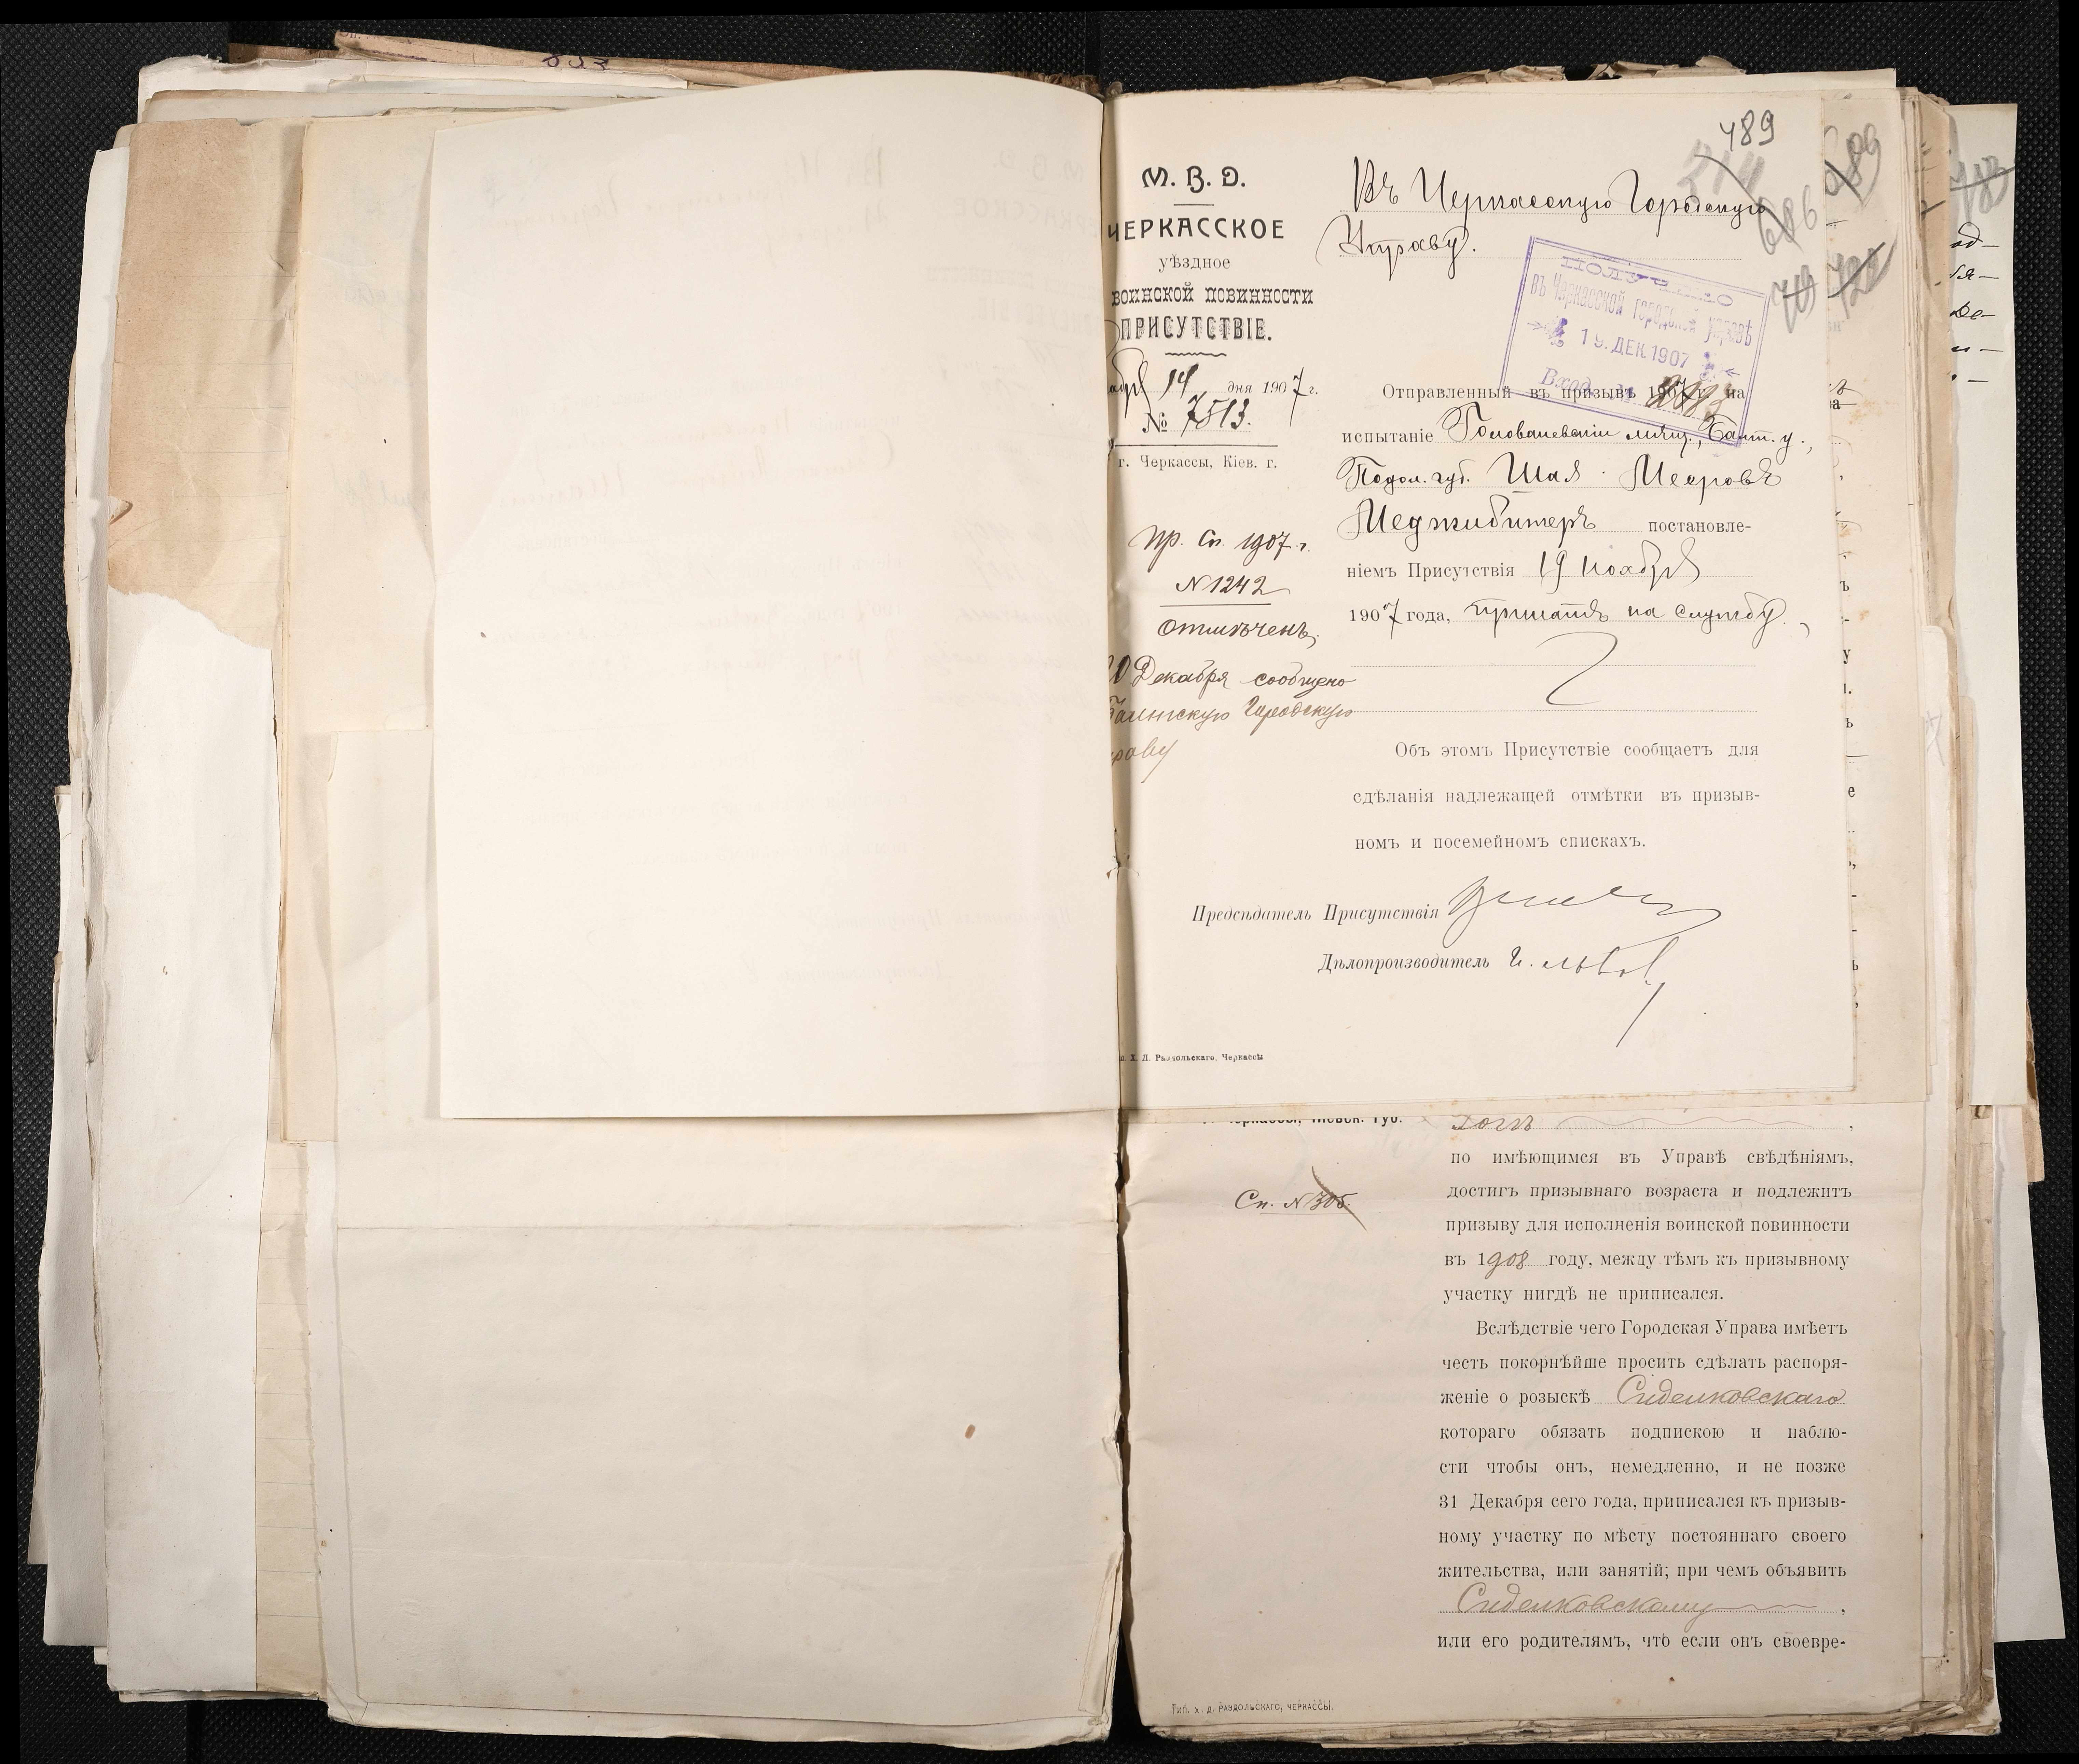 489
М. В. Д.
ЧЕРКАССКОЕ
уѣздное
ВОИНСКОЙ ПОВИННОСТИ
ПРИСУТСТВІЕ.
14 дня 1907 г.
№ 7513.
г. Черкассы, Кіев. г.
Пр. Сп. 1907 г.
N 1242
отмѣченъ,
Декабря сообщено
Городскую
Въ Черкасскую Городскую
Управу.
686
ПОЛУЧЕНО
въ Черкасской городской управѣ
19. ДЕК. 1907
Вход.
Отправленный въ призывъ 1907 г. на
испытаніе Голованевскій мѣщ., Балт. у.,
Подол. губ. Шая Мееровъ
Меджибижеръ постановле-
ніемъ Присутствія 19 Ноября
1907 года, принятъ на службу.
Объ этомъ Присутствіе сообщаетъ для
сдѣланія надлежащей отмѣтки въ призыв-
номъ и посемейномъ спискахъ.
Предсѣдатель Присутствія
Дѣлопроизводитель
Х. Д. Раудольскаго, Черкассы
Черкассы, Кіевск. Губ.
Сп. N 305.
по имѣющимся въ Управѣ свѣдѣніямъ,
достигъ призывнаго возраста и подлежитъ
призыву для исполненія воинской повинности
въ 1908 году, между тѣмъ къ призывному
участку нигдѣ не приписался.
Вслѣдствіе чего Городская Управа имѣетъ
честь покорнѣйше просить сдѣлать распоря-
женіе о розыскѣ Сиделковскаго
котораго обязать подпискою и наблю-
сти чтобы онъ, немедленно, и не позже
31 Декабря сего года, приписался къ призыв-
ному участку по мѣсту постояннаго своего
жительства, или занятій; при чемъ объявить
Сиделковскому,
или его родителямъ, что если онъ своевре-
Тип. Х. Д. РАУДОЛЬСКАГО, ЧЕРКАССЫ.